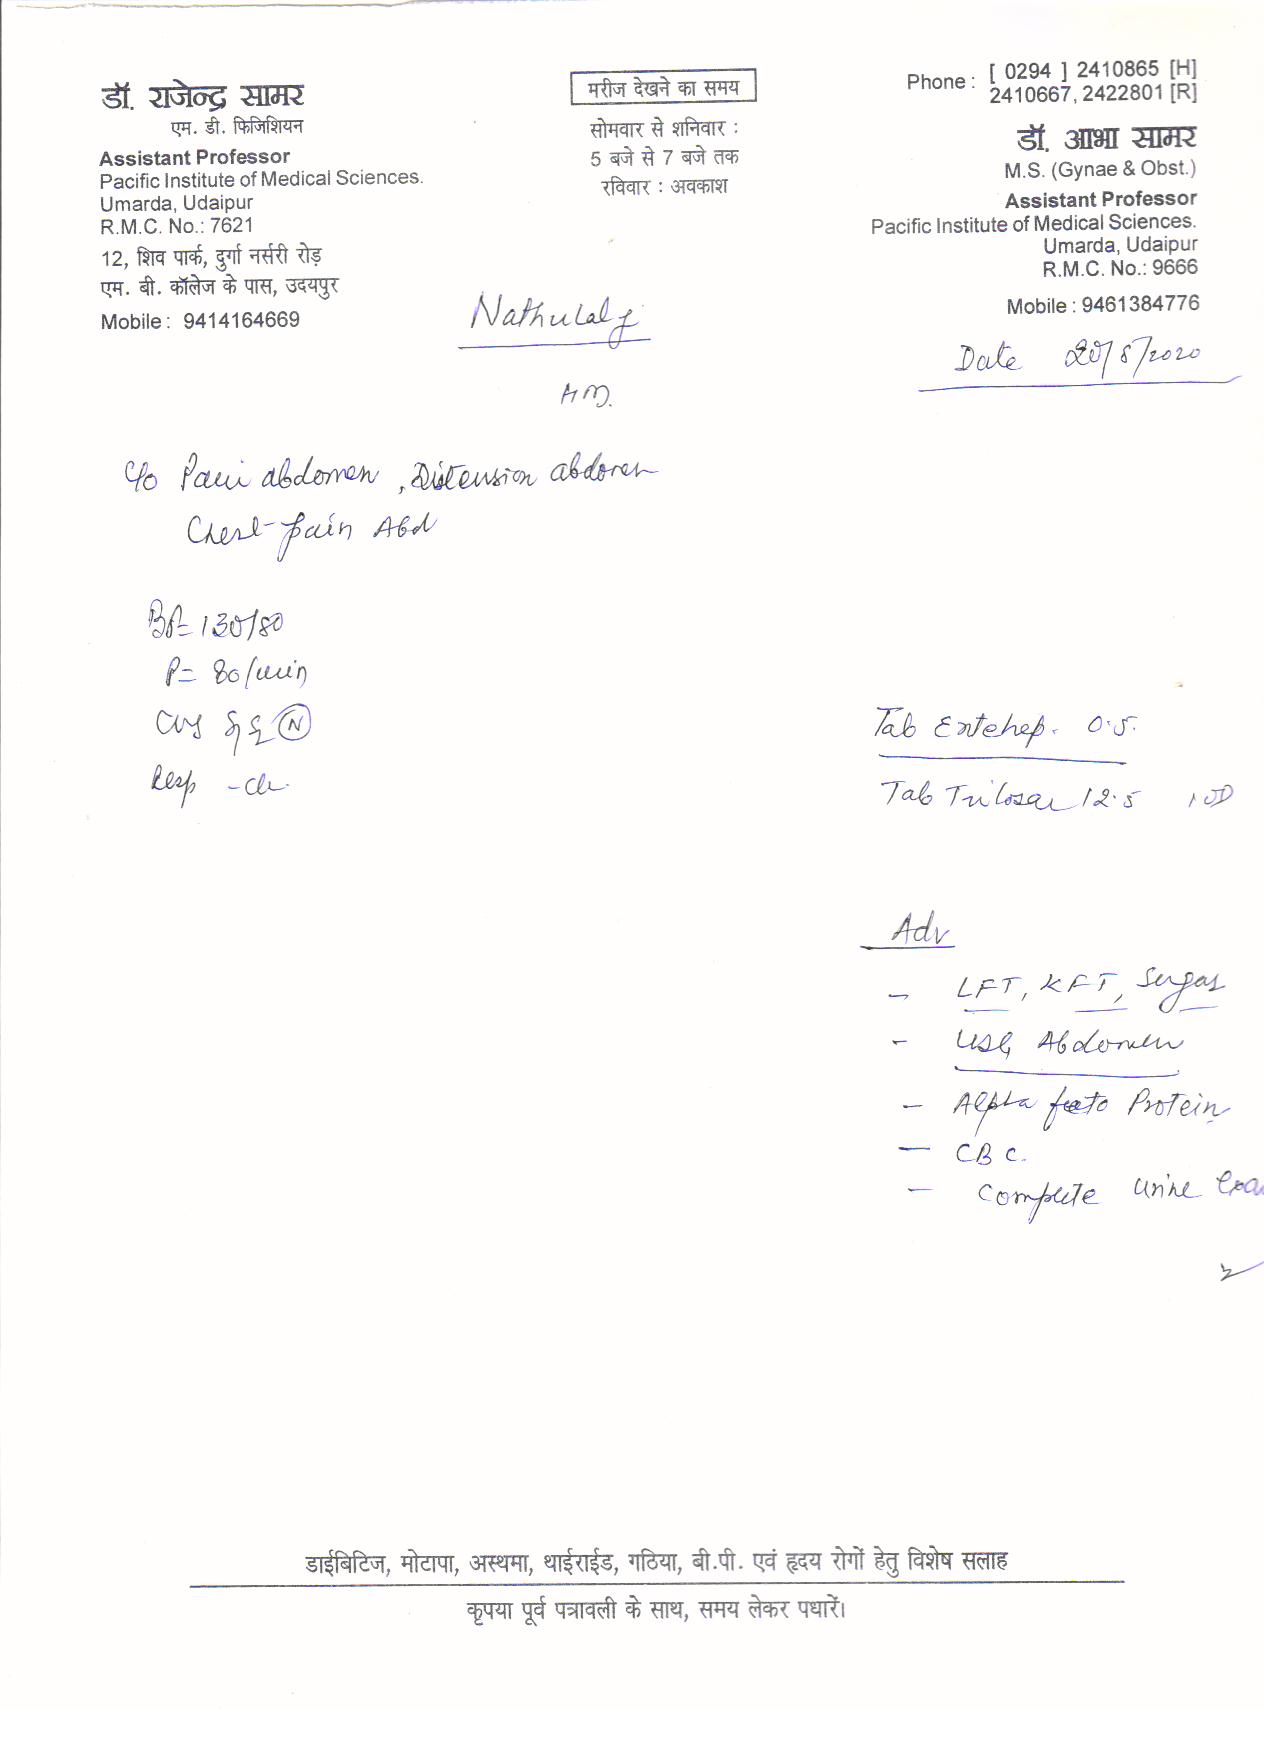 डॉ. राजेन्द्र सामर
एम. डी. फिजिशियन
Assistant Professor
Pacific Institute of Medical Sciences.
Umarda, Udaipur
R.M.C. No.: 7621
12, शिव पार्क, दुर्गा नर्सरी रोड़
एम. बी. कॉलेज के पास, उदयपुर
Mobile : 9414164669
मरीज देखने का समय
सोमवार से शनिवार :
5 बजे से 7 बजे तक
रविवार : अवकाश
Phone : [ 0294 ] 2410865 [H]
2410667, 2422801 [R]
डॉ. आभा सामर
M.S. (Gynae & Obst.)
Assistant Professor
Pacific Institute of Medical Sciences.
Umarda, Udaipur
R.M.C. No.: 9666
Mobile : 9461384776
Nathulal j
Date 20/8/2020
C/o Pain abdomen, Distension abdomen
Chest pain Abd
BP= 130/80
P= 80/min
CVS S1 S2 (N)
Resp - cl.
Tab Entehep. 0.5.
Tab Trilosar 12.5 1 OD
Adv
- LFT, KFT, Sugar
- USG Abdomen
- Alpha feto Protein
- CBC.
- Complete Urine Exa
डाईबिटिज, मोटापा, अस्थमा, थाईराईड, गठिया, बी.पी. एवं हृदय रोगों हेतु विशेष सलाह
कृपया पूर्व पत्रावली के साथ, समय लेकर पधारें।